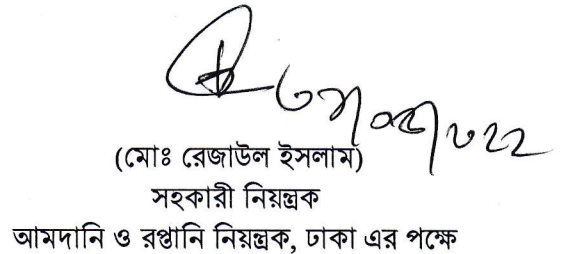 (মোঃ রেজাউল ইসলাম)
সহকারী নিয়ন্ত্রক
আমদানি ও রপ্তানি নিয়ন্ত্রক, ঢাকা এর পক্ষে